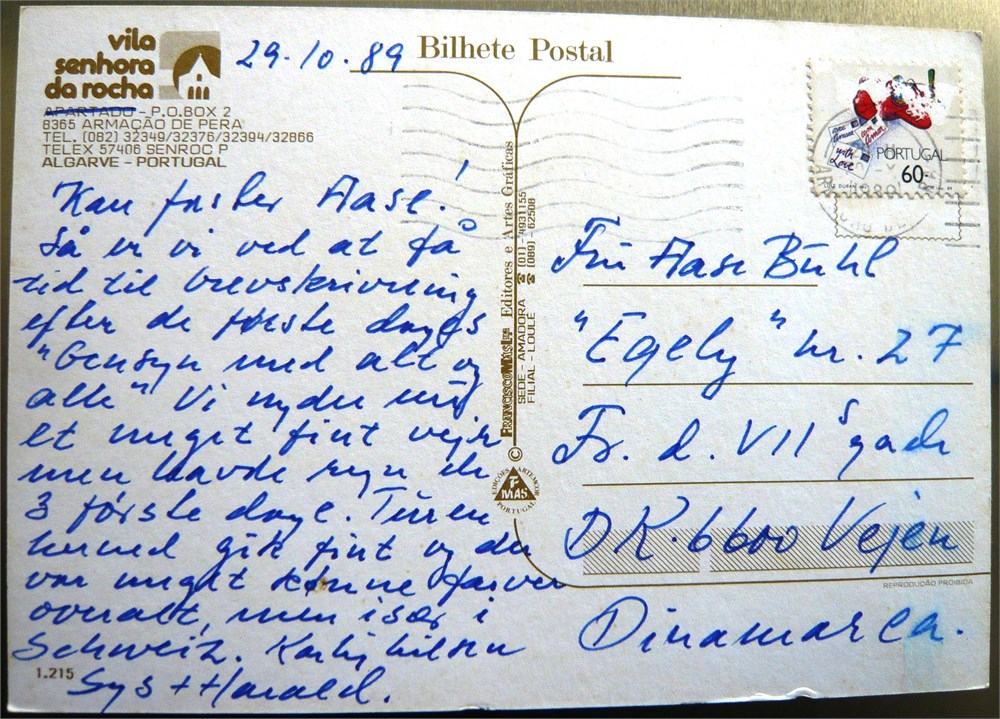 vila
senhora
da rocha
APARTADO - P.O.BOX 2
8365 ARMAÇÃO DE PERA
TEL. (082) 32349/32376/32394/32866
TELEX 57406 SENROC P
ALGARVE - PORTUGAL
29.10.89
Bilhete Postal
Kære faster Aase!
Så er vi ved at få
tid til brevskrivning
efter de første dages
"Gensyn med alt og
alle" Vi nyder nu
et meget fint vejr
men havde regn de
3 første dage. Turen
herned gik fint og der
var meget kønne farver
overalt, men især i
Schweiz. Kærlig hilsen
Sys + Harald.
1.215
© FRANCISCO MAS Lda Editores e Artes Gráficas
SEDE - AMADORA ☎ (01) - 4931155
FILIAL - LOULÉ ☎ (089) - 62508
EDIÇÕES ARTEMCOR
F
MAS
PORTUGAL
with
Love
PORTUGAL
60.-
1989
Fru Aase Bühl
"Egely" nr. 27
Fr. d. VII's gade
DK. 6600 Vejen
REPRODUÇÃO PROIBIDA
Dinamarca.